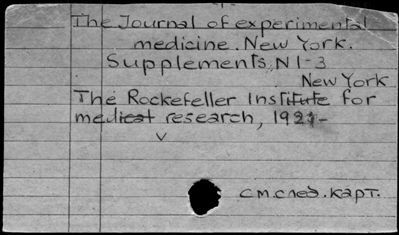 The Journal of experimental
medicine. New York.
Supplements, N 1-3
New York
The Rockefeller Institute for
medical research, 1921-
v
см.след.карт.